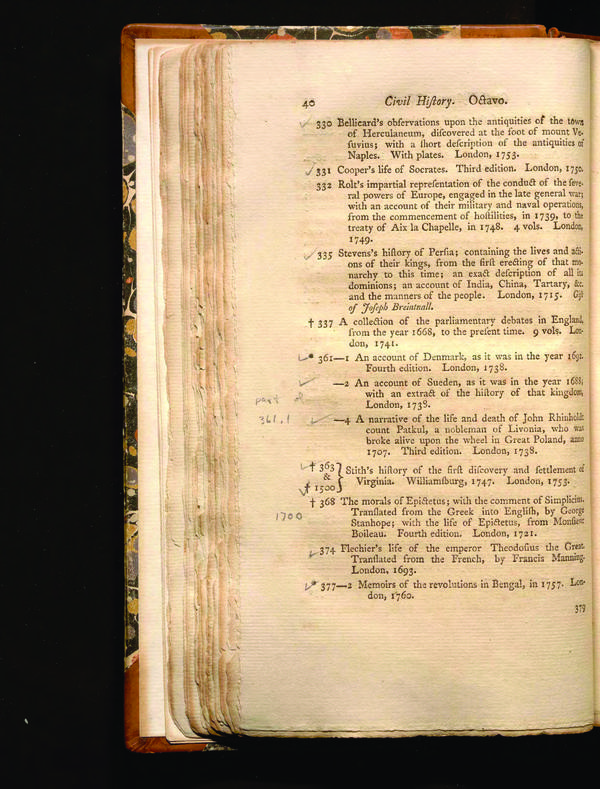 40 Civil Hiſtory. Octavo.
330 Bellicard's obſervations upon the antiquities of the town
of Herculaneum, diſcovered at the foot of mount Ve-
ſuvius; with a ſhort deſcription of the antiquities of
Naples. With plates. London, 1753.
331 Cooper's life of Socrates. Third edition. London, 1750.
332 Rolt's impartial repreſentation of the conduct of the ſeve-
ral powers of Europe, engaged in the late general war;
with an account of their military and naval operations,
from the commencement of hoſtilities, in 1739, to the
treaty of Aix la Chapelle, in 1748. 4 vols. London,
1749.
335 Stevens's hiſtory of Perſia; containing the lives and acti-
ons of their kings, from the firſt erecting of that mo-
narchy to this time; an exact deſcription of all its
dominions; an account of India, China, Tartary, &c.
and the manners of the people. London, 1715. Gift
of Joſeph Breintnall.
† 337 A collection of the parliamentary debates in England,
from the year 1668, to the preſent time. 9 vols. Lon-
don, 1741.
* 361—1 An account of Denmark, as it was in the year 1691.
Fourth edition. London, 1738.
—2 An account of Sueden, as it was in the year 1688;
with an extract of the hiſtory of that kingdom,
London, 1738.
part of
361.1
—4 A narrative of the life and death of John Rhinholdt
count Patkul, a nobleman of Livonia, who was
broke alive upon the wheel in Great Poland, anno
1707. Third edition. London, 1738.
† 363
&
† 1500
} Stith's hiſtory of the firſt diſcovery and ſettlement of
Virginia. Williamſburg, 1747. London, 1753.
† 368 The morals of Epictetus; with the comment of Simplicius.
1700
Tranſlated from the Greek into Engliſh, by George
Stanhope; with the life of Epictetus, from Monſieur
Boileau. Fourth edition. London, 1721.
374 Flechier's life of the emperor Theodoſius the Great.
Tranſlated from the French, by Francis Manning.
London, 1693.
* 377—2 Memoirs of the revolutions in Bengal, in 1757. Lon-
don, 1760.
379